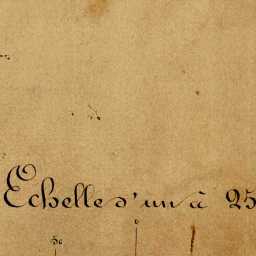 Echelle d'un à 25
50 0